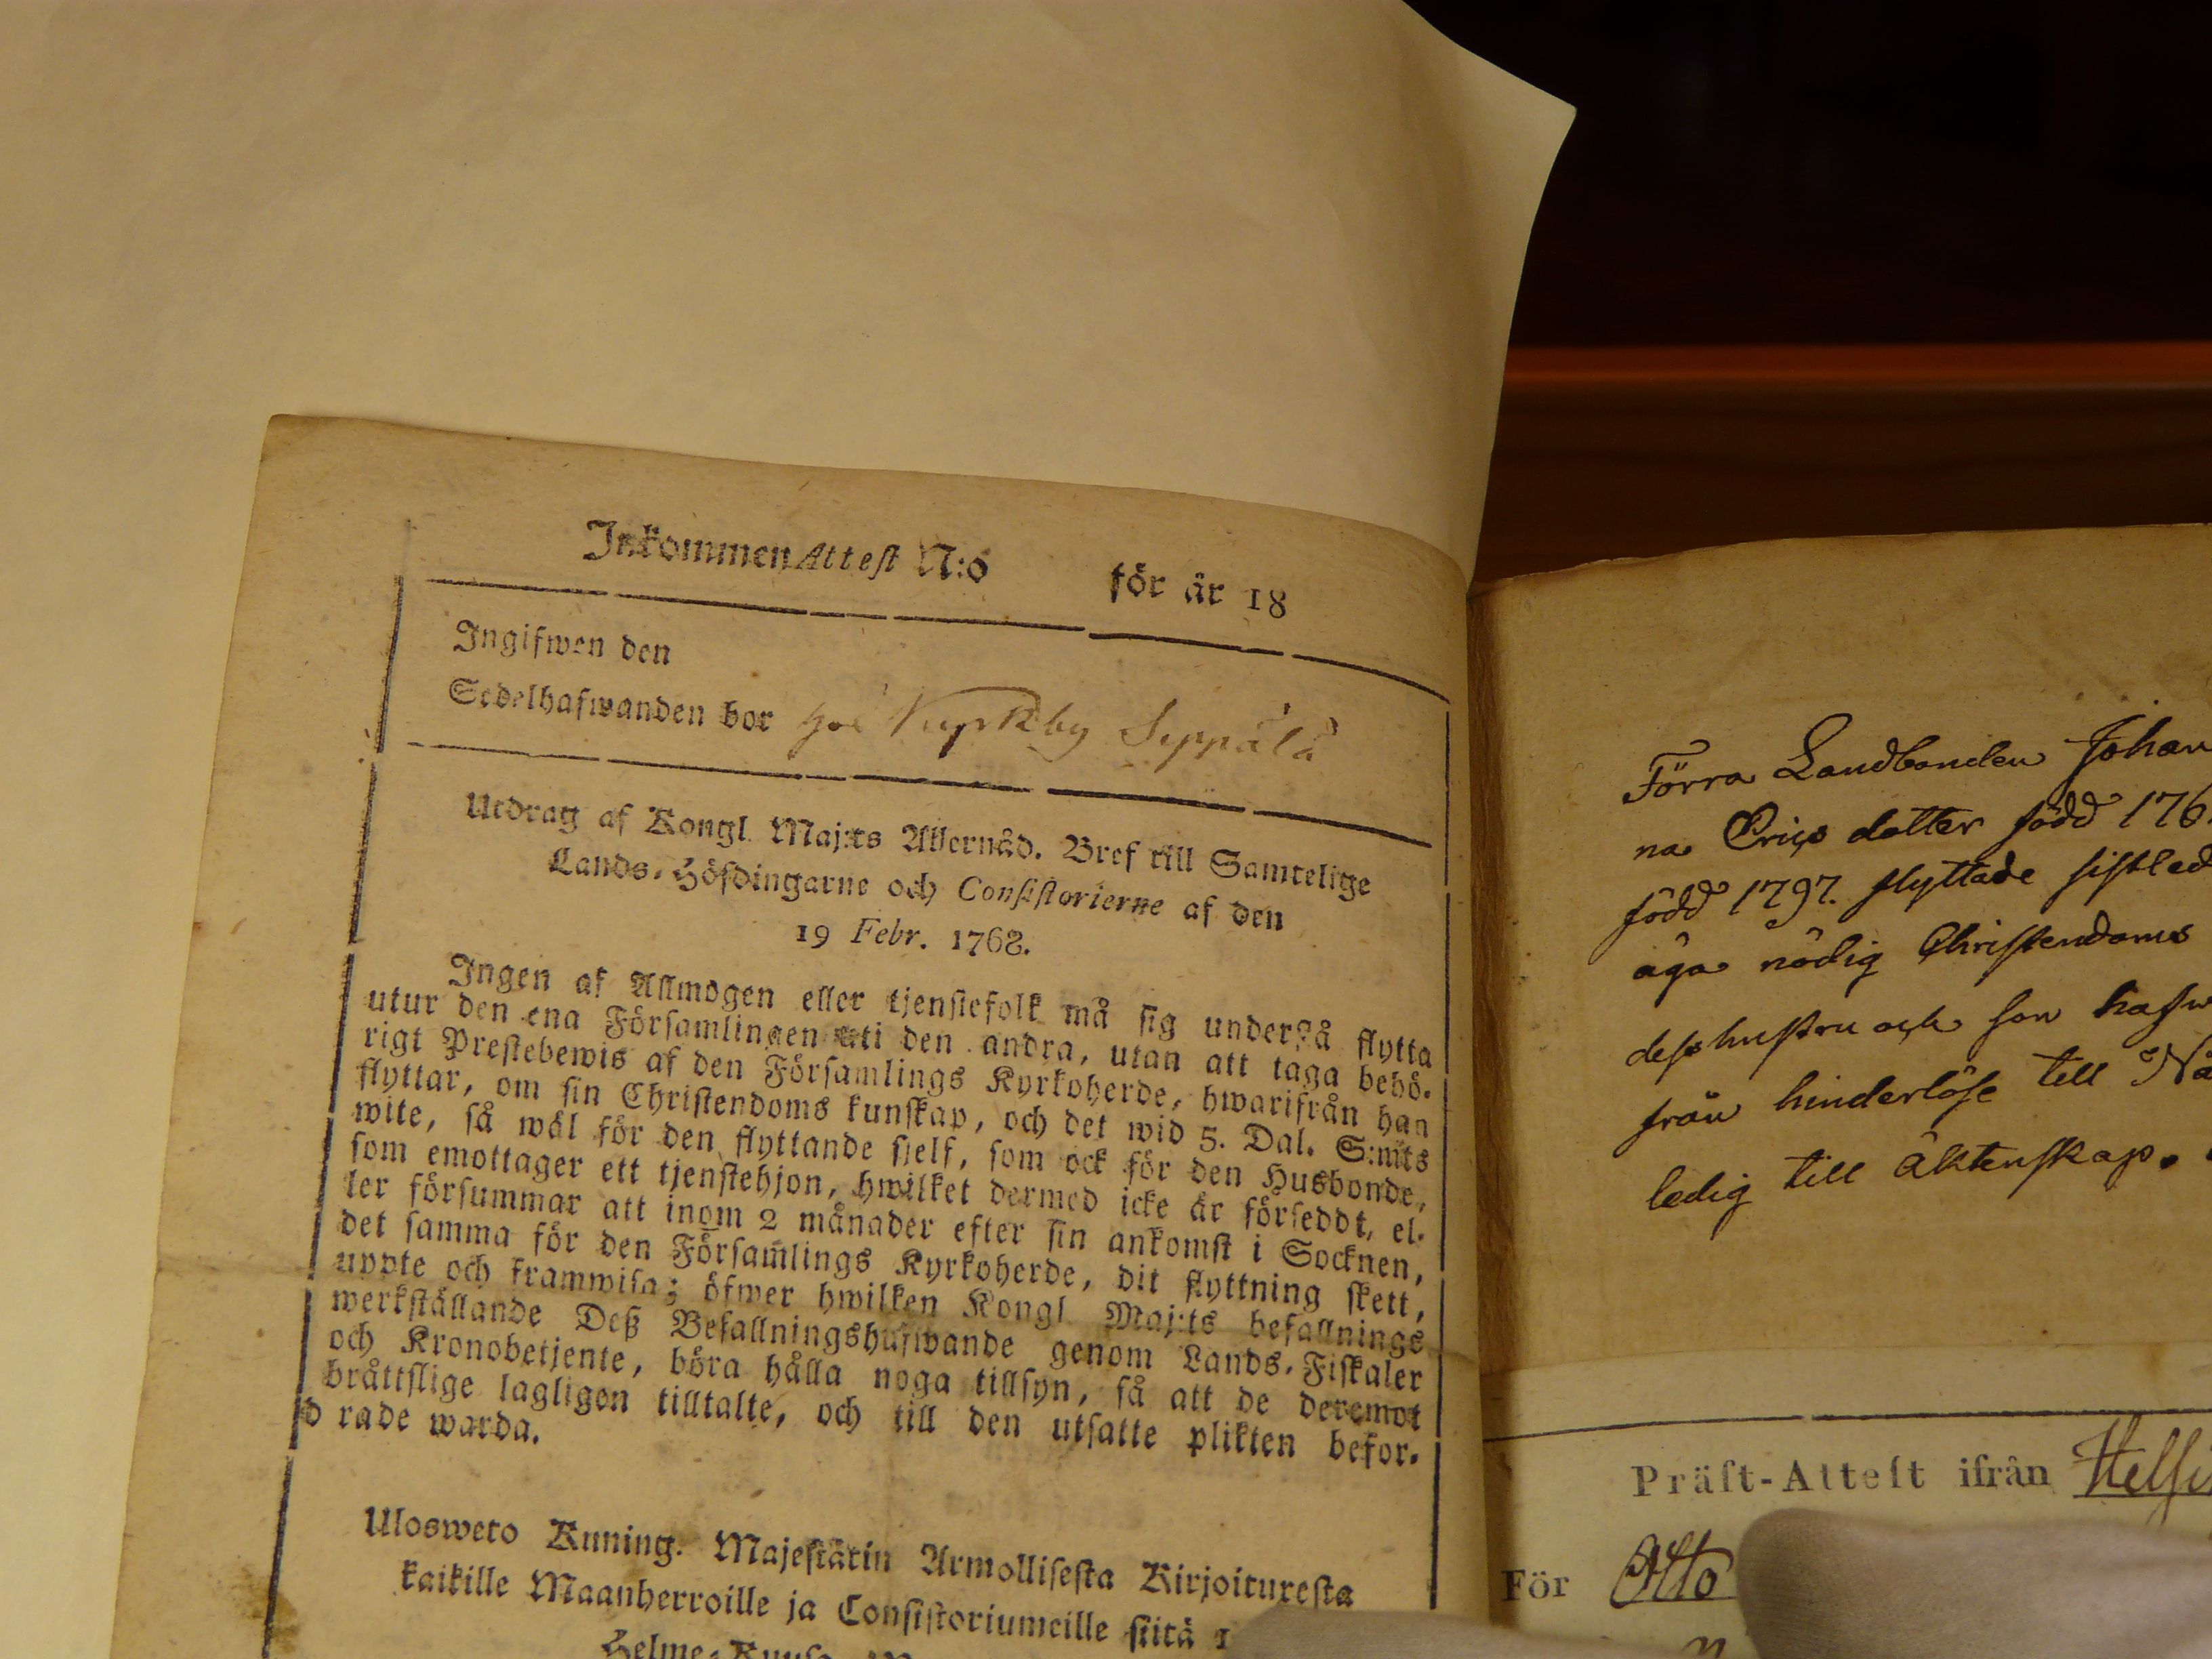 Inkommen Attest N:o för år 18
Ingifwen den
Sedelhafwanden bor hos Kyrkby Seppälä
Utdrag af Kongl. Maj:ts Allernåd. Bref till Samtelige
Lands-Höfdingarne och Consistorierne af den
19 Febr. 1768.
Ingen af Allmogen eller tjenstefolk må sig undergå flytta
utur den ena Församlingen uti den andra, utan att taga behö-
rigt Prestebewis af den Församlings Kyrkoherde, hwarifrån han
flyttar, om sin Christendoms kunskap, och det wid 5. Dal. S:mts
wite, så wäl för den flyttande sjelf, som ock för den Husbonde,
som emottager ett tjenstehjon, hwilket dermed icke är försedt, el-
ler försummar att inom 2 månader efter sin ankomst i Socknen,
det samma för den Församlings Kyrkoherde, dit flyttning skett,
uppte och framwisa; öfwer hwilken Kongl Maj:ts befallnings
werkställande Deß Befallningshafwande genom Lands-Fiskaler
och Kronobetjente, böra hålla noga tillsyn, så att de deremot
bråttslige lagligen tilltalte, och till den utsatte plikten befor-
d rade warda.
Ulosweto Kuning. Majestätin Armollisesta Kirjoituresta
kaikille Maanherroille ja Consistoriumeille siitä 1
Helme-Kuusa
Förra Landbonden Johan
na Erics dotter född 176
född 1797. flyttade sistled
äga nödig Christendoms
dess hustru och son hafw
från hinderlöse till Nå
ledig till Äktenskap.
Präst-Attest ifrån Helsi
För Otto